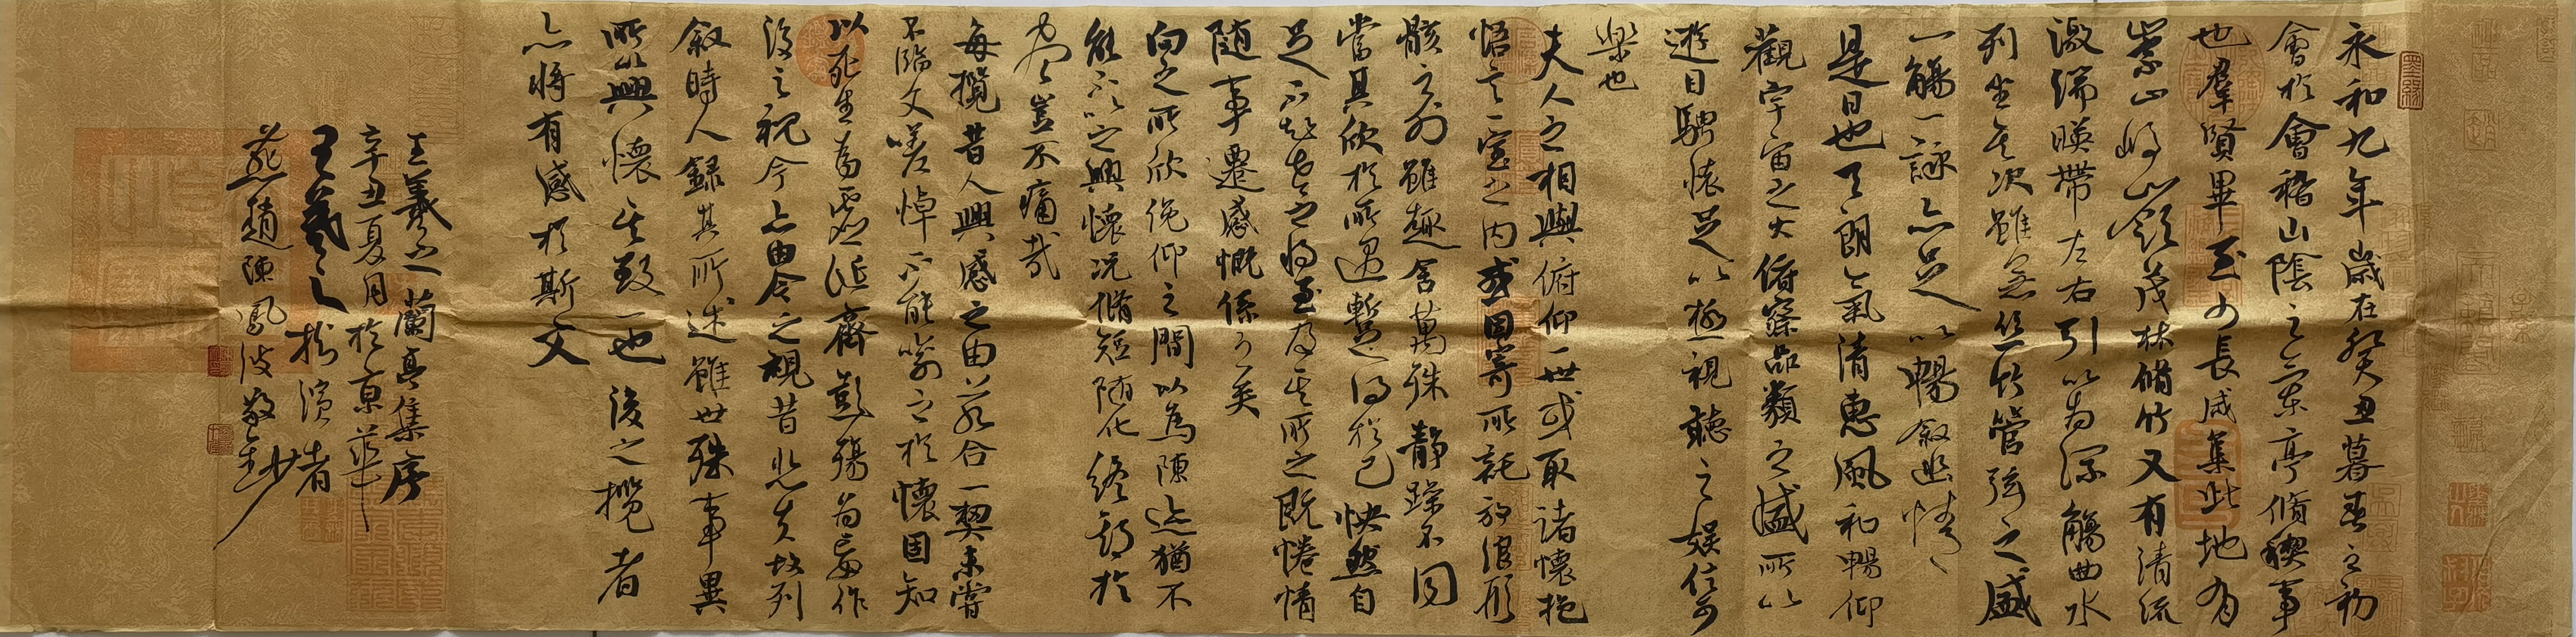 永和九年歲在癸丑暮春之初
會於會稽山陰之蘭亭脩禊事
也羣賢畢至少長咸集此地有
崇山峻領茂林脩竹又有清流
激湍暎帶左右引以為流觴曲水
列坐其次雖無絲竹管弦之盛
一觴一詠亦足以暢敘幽情
是日也天朗氣清惠風和暢仰
觀宇宙之大俯察品類之盛所以
遊目騁懷足以極視聽之娛信可
樂也
夫人之相與俯仰一世或取諸懷抱
悟言一室之內或因寄所託放浪形
骸之外雖趣舍萬殊靜躁不同
當其欣於所遇暫得於己快然自
足不知老之將至及其所之既惓情
隨事遷感慨係之矣
向之所欣俛仰之間以為陳迹猶不
能不以之興懷況脩短隨化終期於
盡豈不痛哉
每攬昔人興感之由若合一契未嘗
不臨文嗟悼不能喻之於懷固知
以死生為虛誕齊彭殤為妄作
後之視今亦由今之視昔悲夫故列
敘時人錄其所述雖世殊事異
所以興懷其致一也後之攬者
亦將有感於斯文
王羲之蘭亭集序
辛丑夏月於京華
王羲之扮演者
燕趙陳鳳波敬書